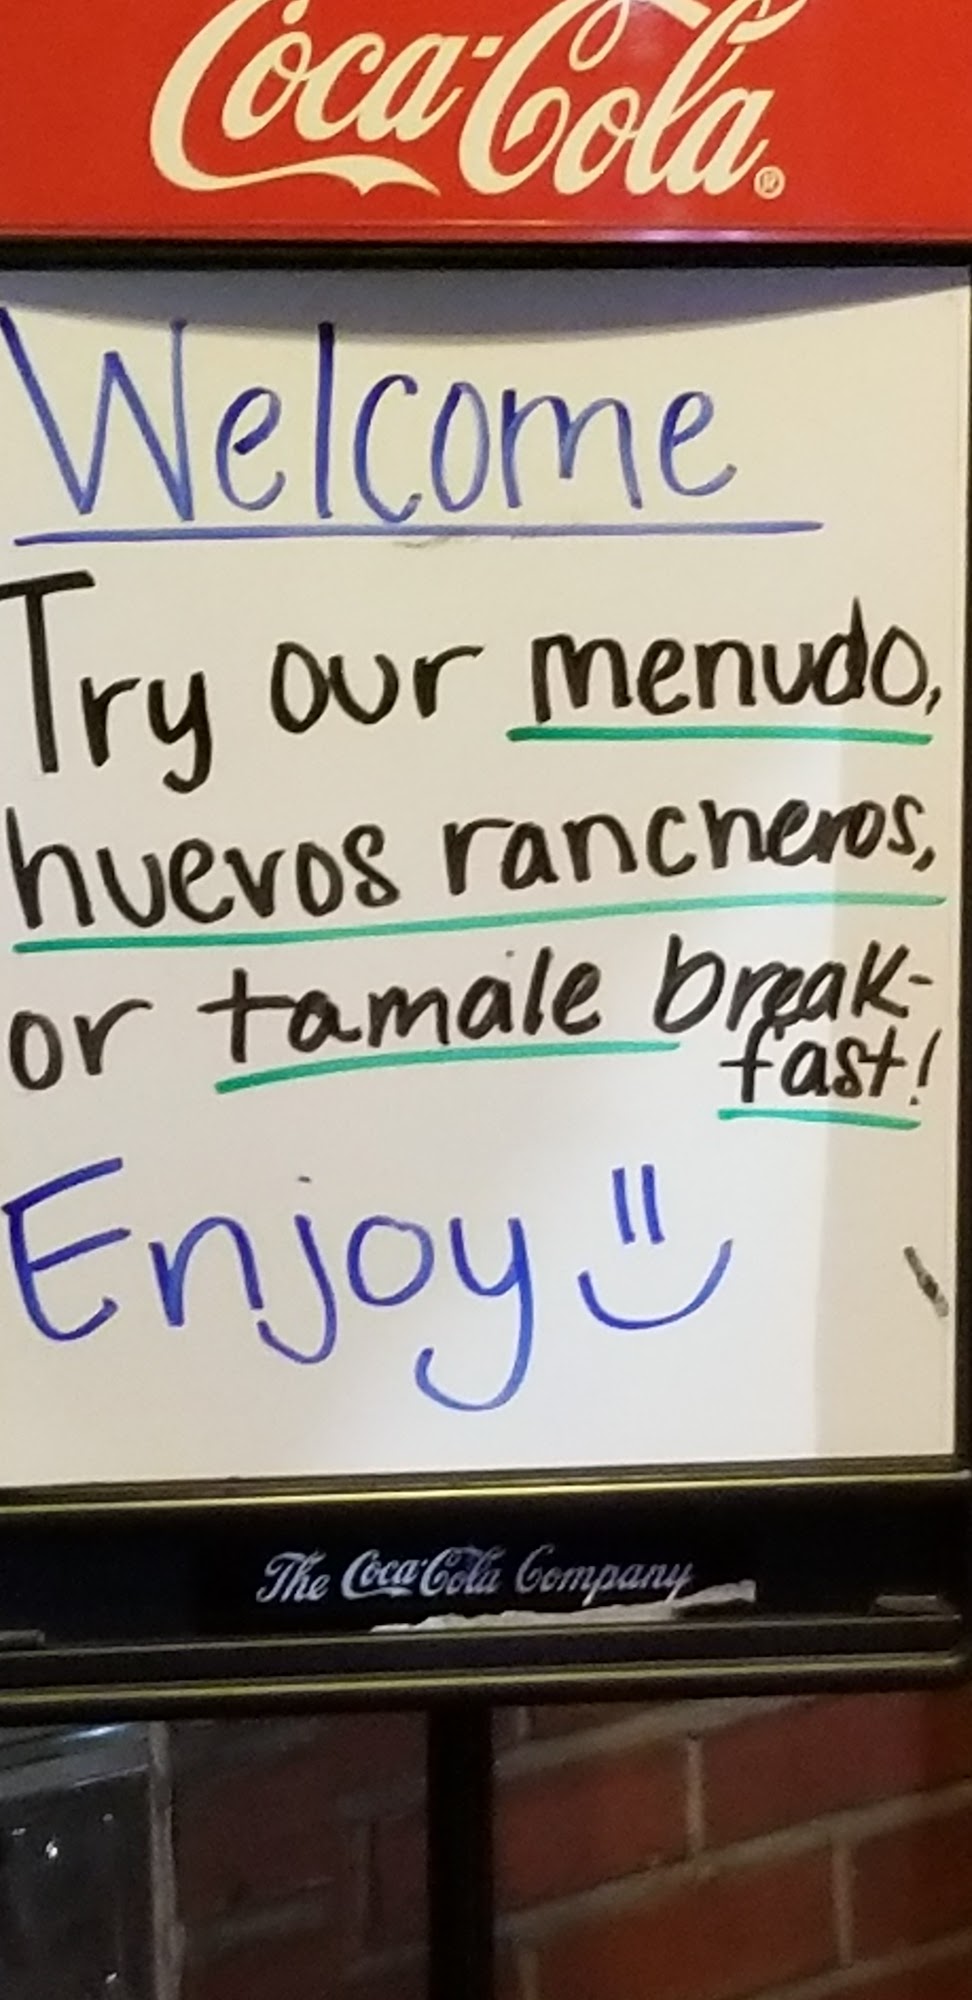 Coca-Cola®
Welcome
Try our menudo,
huevos rancheros,
or tamale break-
fast!
Enjoy
The Coca-Cola Company